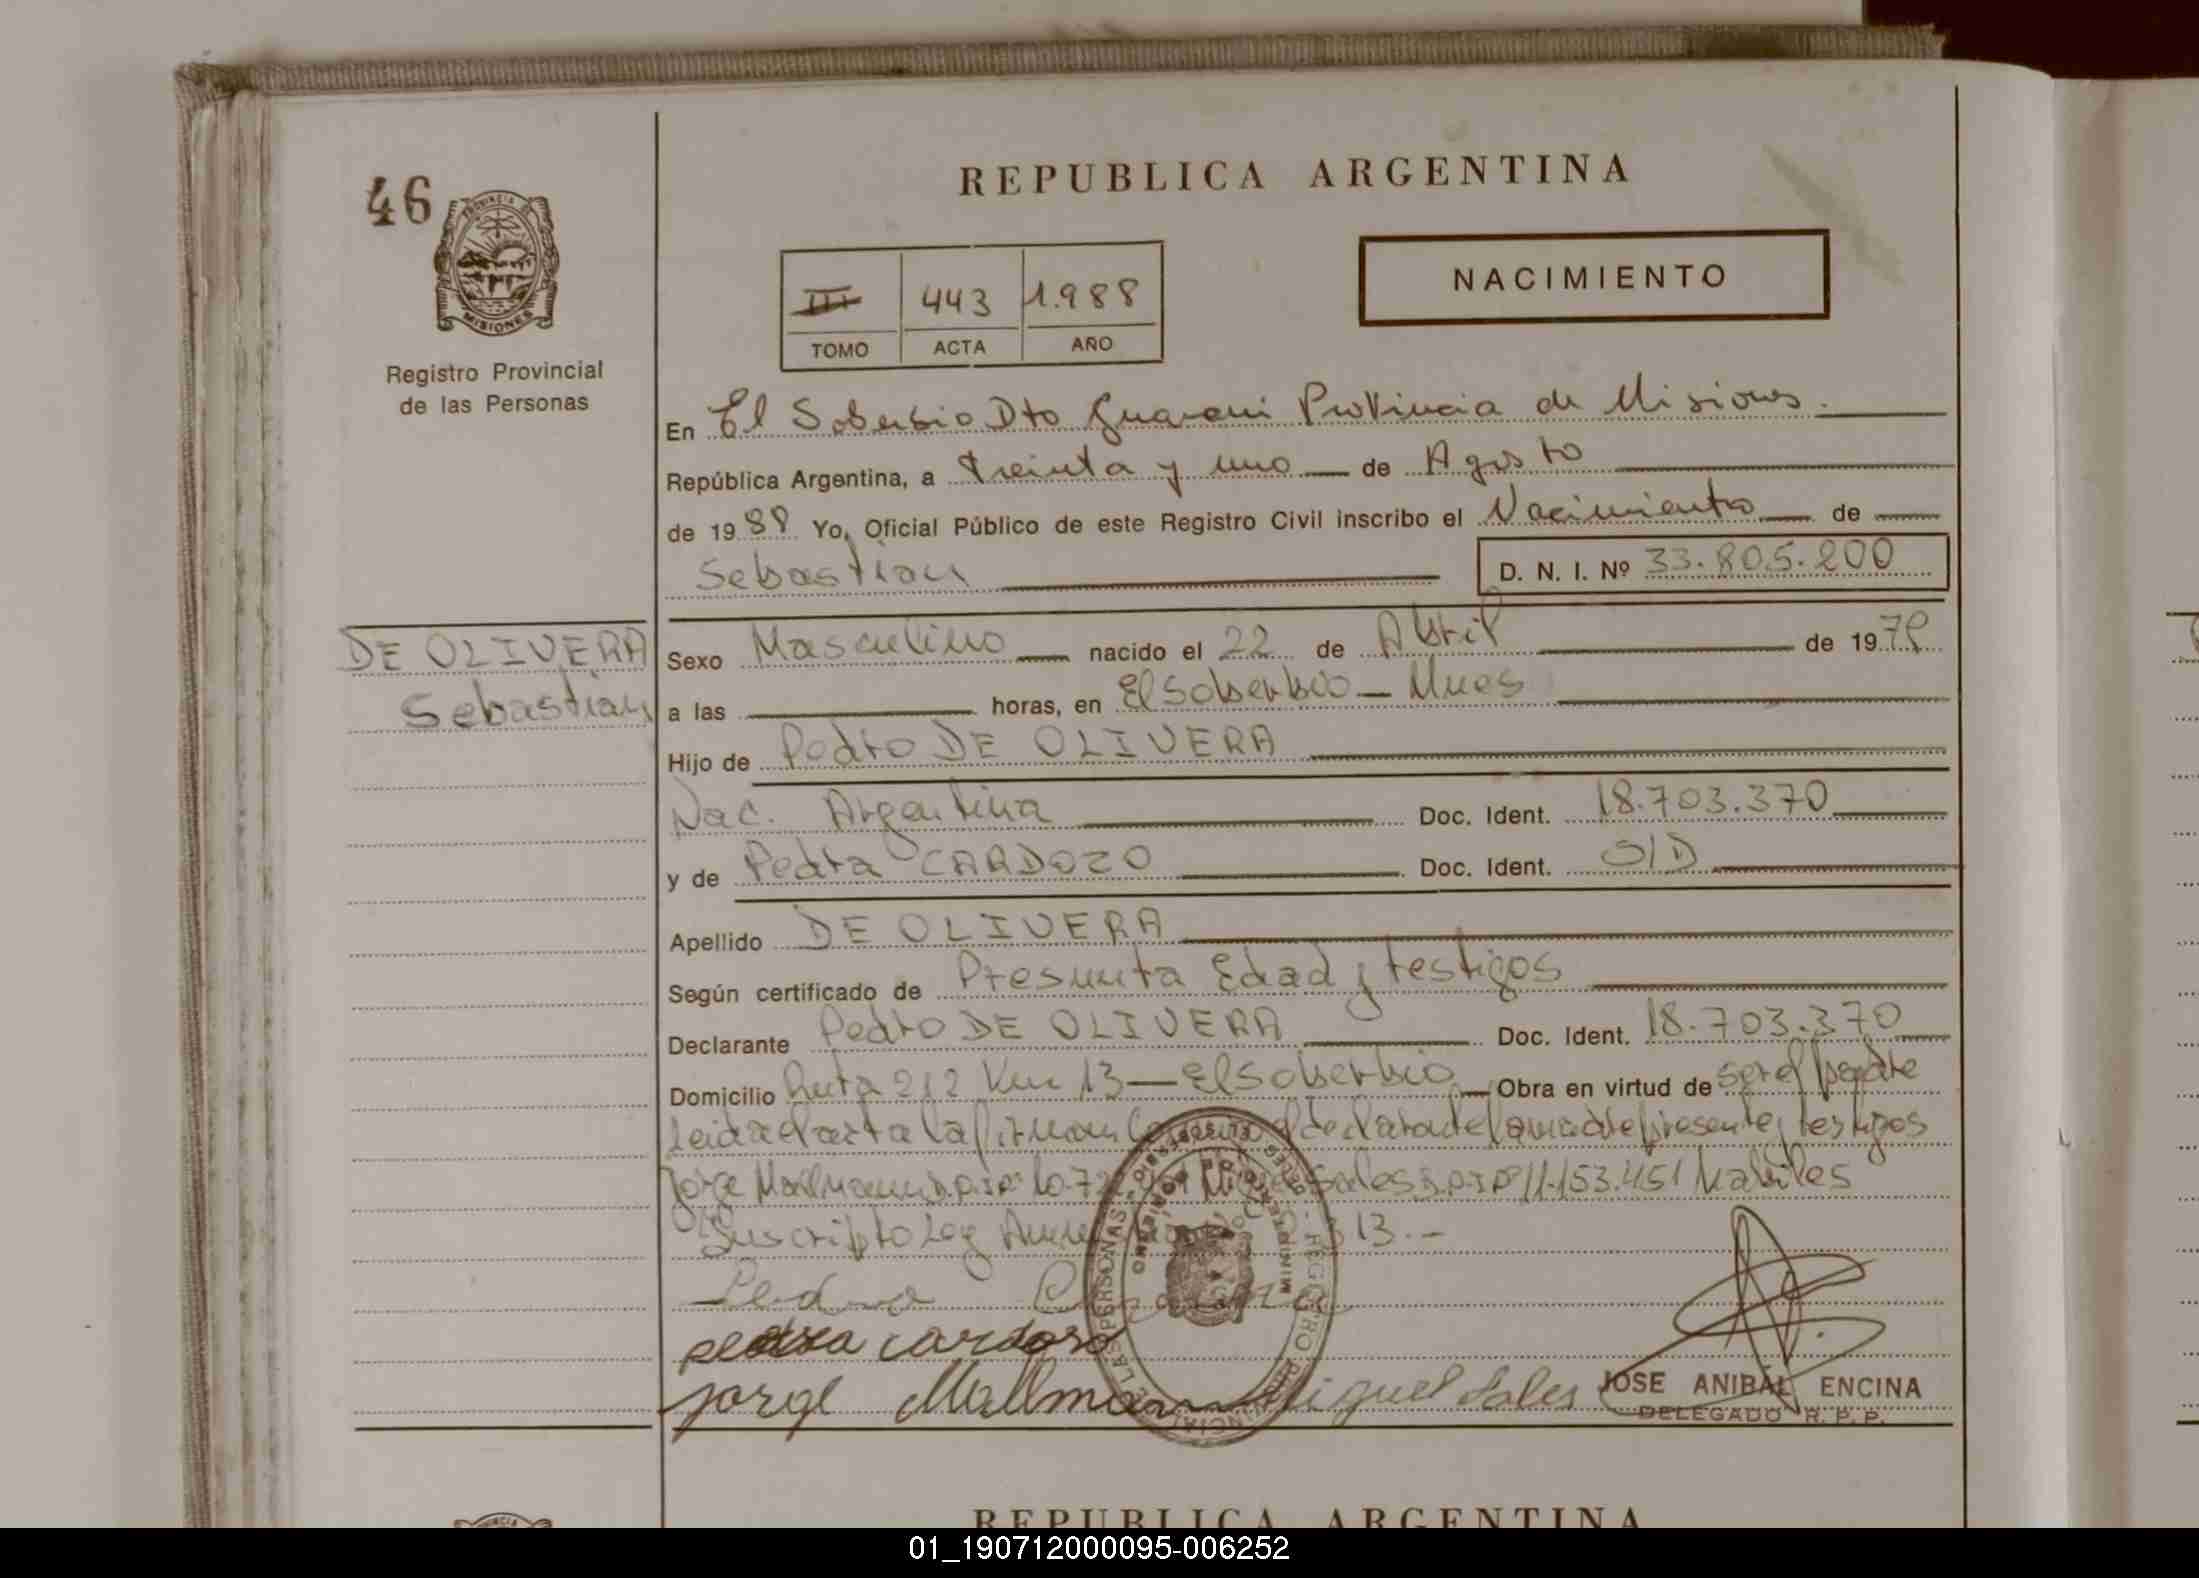 REPUBLICA ARGENTINA
46
PROVINCIA DE
MISIONES
Registro Provincial
de las Personas
III 443 1.988
TOMO ACTA AÑO
NACIMIENTO
En El Soberbio Dto Guarani Provincia de Misiones.
República Argentina, a treinta y uno de Agosto
de 1988 Yo, Oficial Público de este Registro Civil inscribo el Nacimiento de
Sebastian D. N. I. Nº 33.805.200
DE OLIVERA
Sebastian
Sexo Masculino nacido el 22 de Abril de 19
a las horas, en El Soberbio - Mnes
Hijo de Pedro DE OLIVERA
Nac. Argentina Doc. Ident. 18.703.370
y de Pedra CARDOZO Doc. Ident. S/D
Apellido DE OLIVERA
Según certificado de Presunta Edad y testigos
Declarante Pedro DE OLIVERA Doc. Ident. 18.703.370
Domicilio Ruta 212 Km 13 - El Soberbio Obra en virtud de ser el padre
Leida el acta la firman el declarante la madre presente y testigos
Jorge Mallmann Sales 11.153.451 habiles
Suscripto Ley 13.-
Pedro
pedra cardoso
jorge Mallmann Miguel Sales
JOSE ANIBAL ENCINA
DELEGADO R. P. P.
REPUBLICA ARGENTINA
01_190712000095-006252